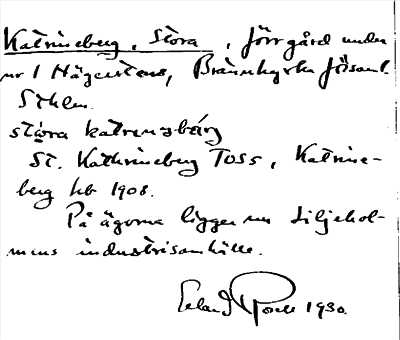 Katrineberg, Stora, förr gård under
nr 1 Hägersten, Brännkyrka förs:aml.
Sthlm.
stóra katrinəbærj
St. Kathrineberg TOSS, Katrine-
berg hb 1908.
På ägorna ligger nu Liljehol-
mens industrisamhälle.
Erland Rosell 1930.